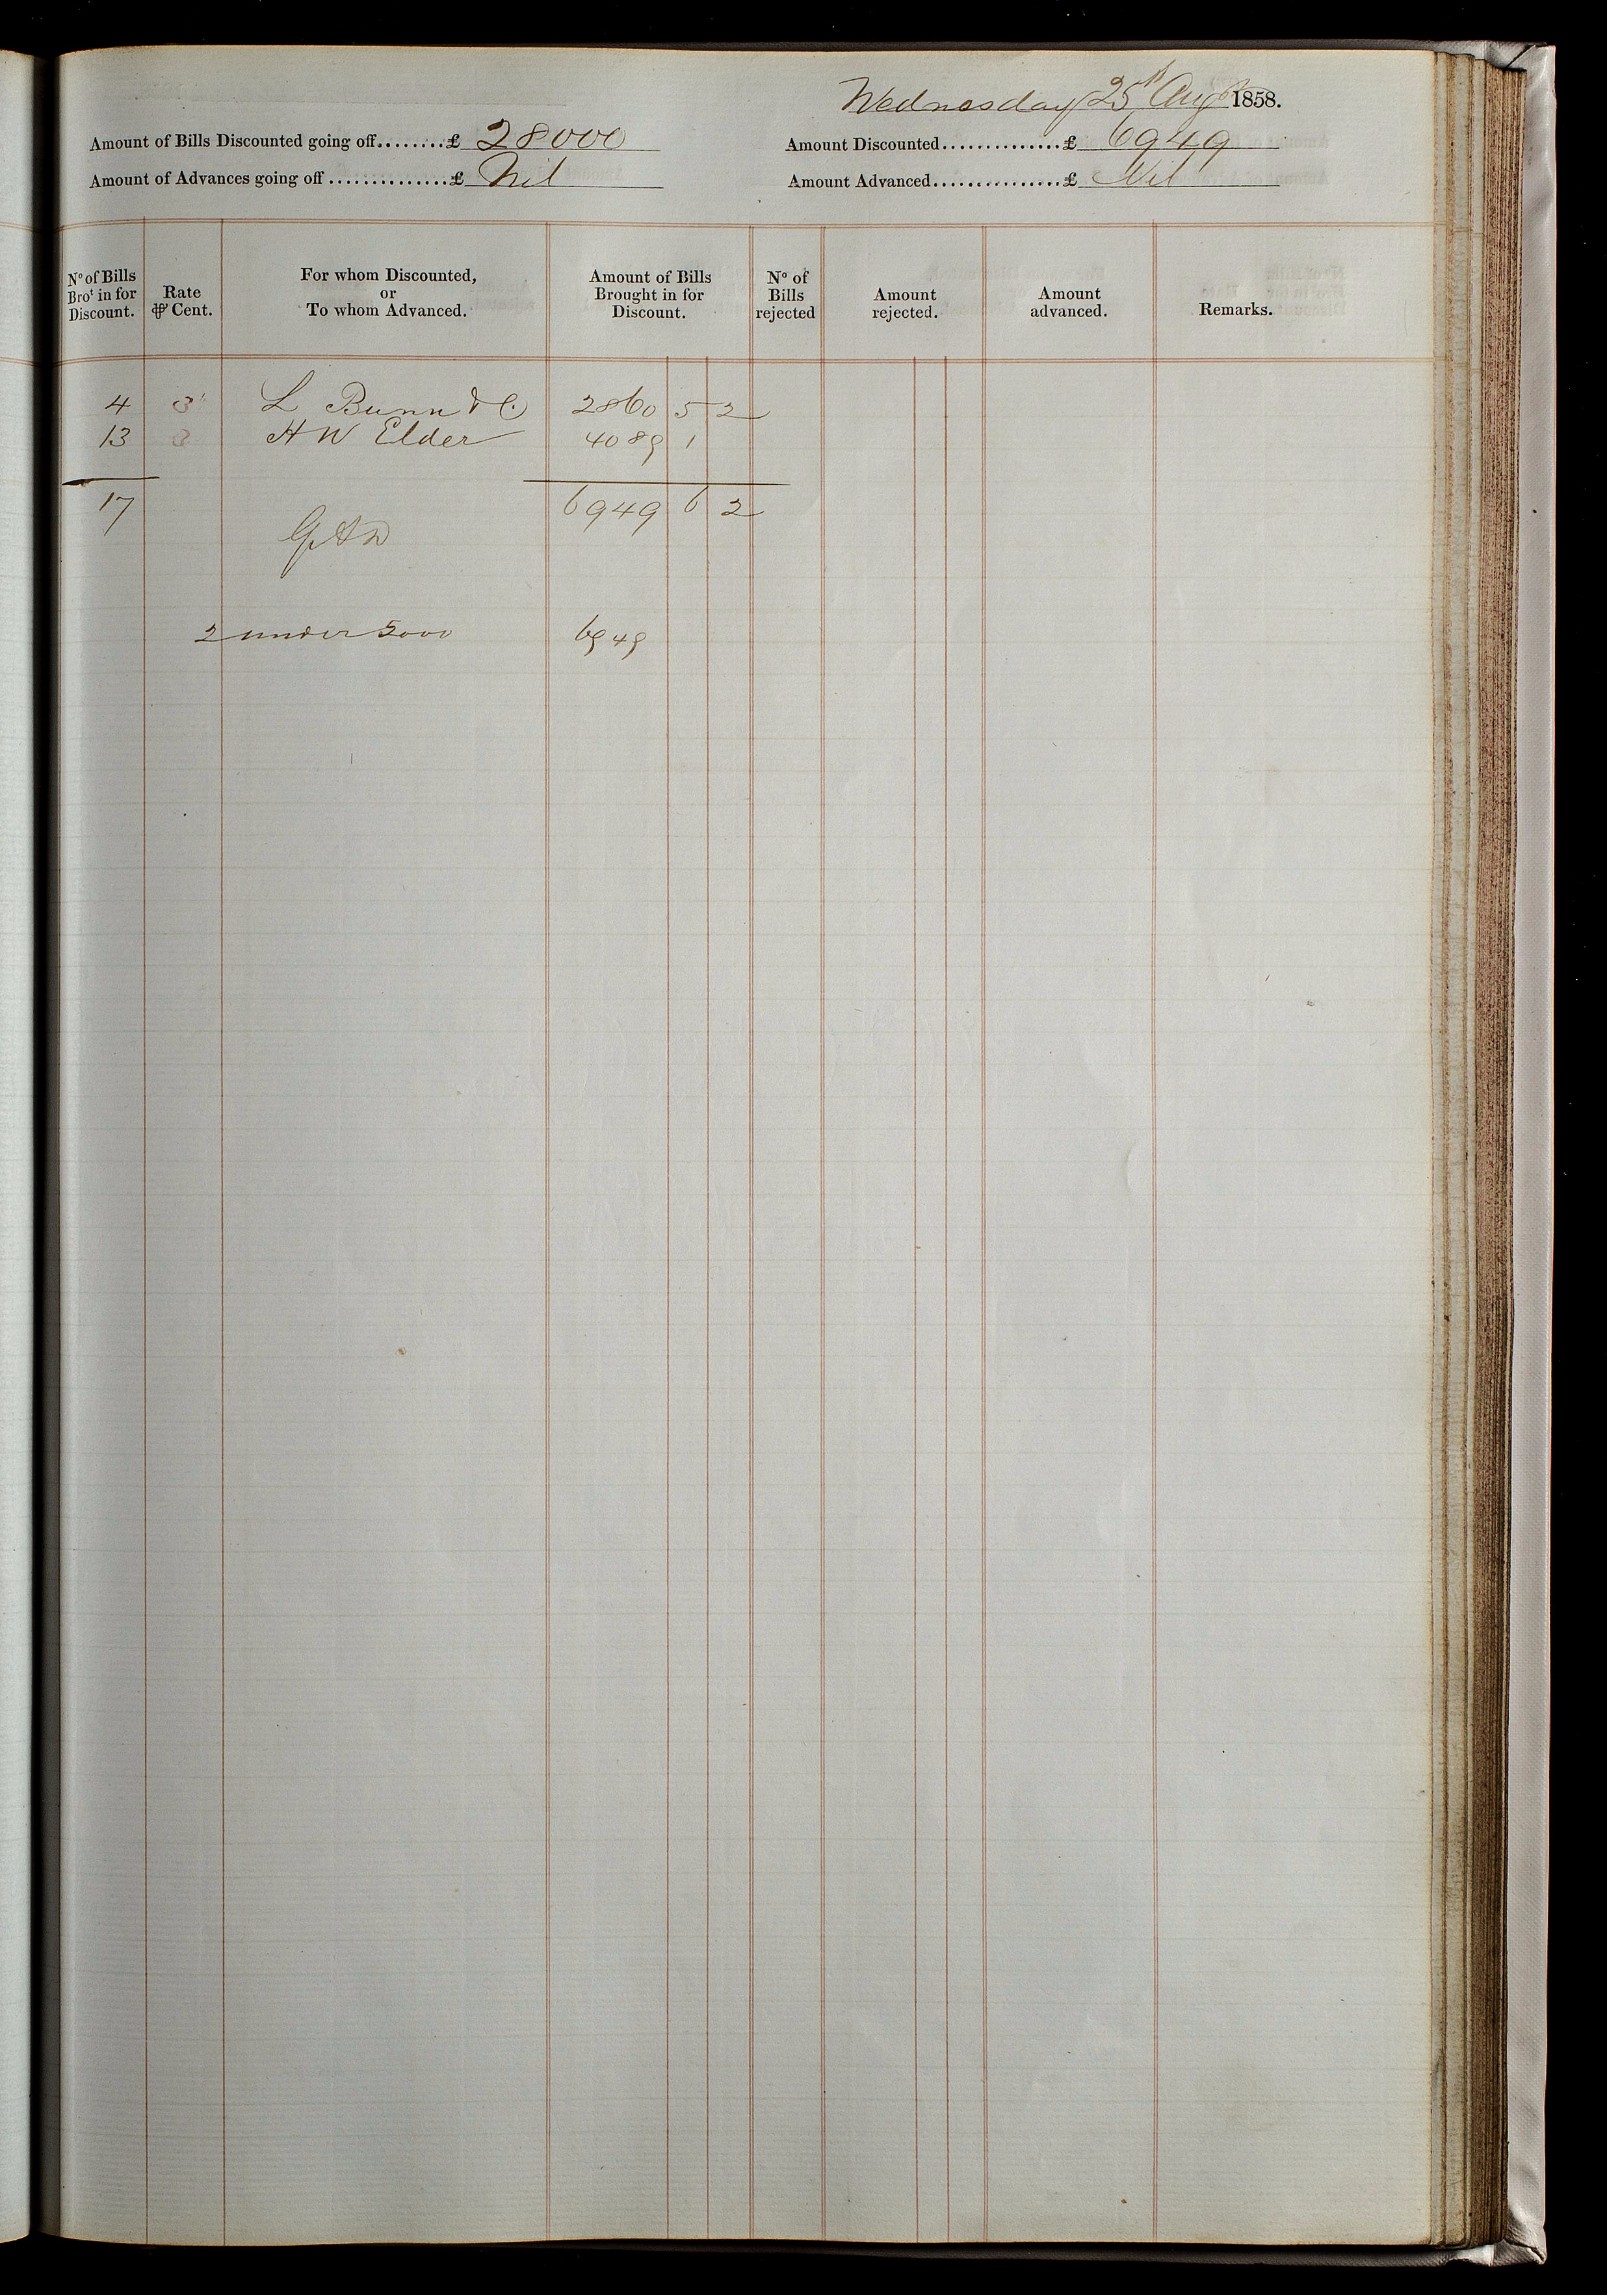 Wednesday 25th Augt 1858.
Amount of Bills Discounted going off........£ 28000
Amount Discounted..............£ 6949
Amount of Advances going off..............£ Nil
Amount Advanced...............£ Nil
No of Bills Brot in for Discount.
Rate ⅌ Cent.
For whom Discounted, or To whom Advanced.
Amount of Bills Brought in for Discount.
No of Bills rejected
Amount rejected.
Amount advanced.
Remarks.
4 3 L Bunn & Co 2860 5 2
13 3 HW Elder 4089 1
17 6949 6 2
2 under 5000 6949